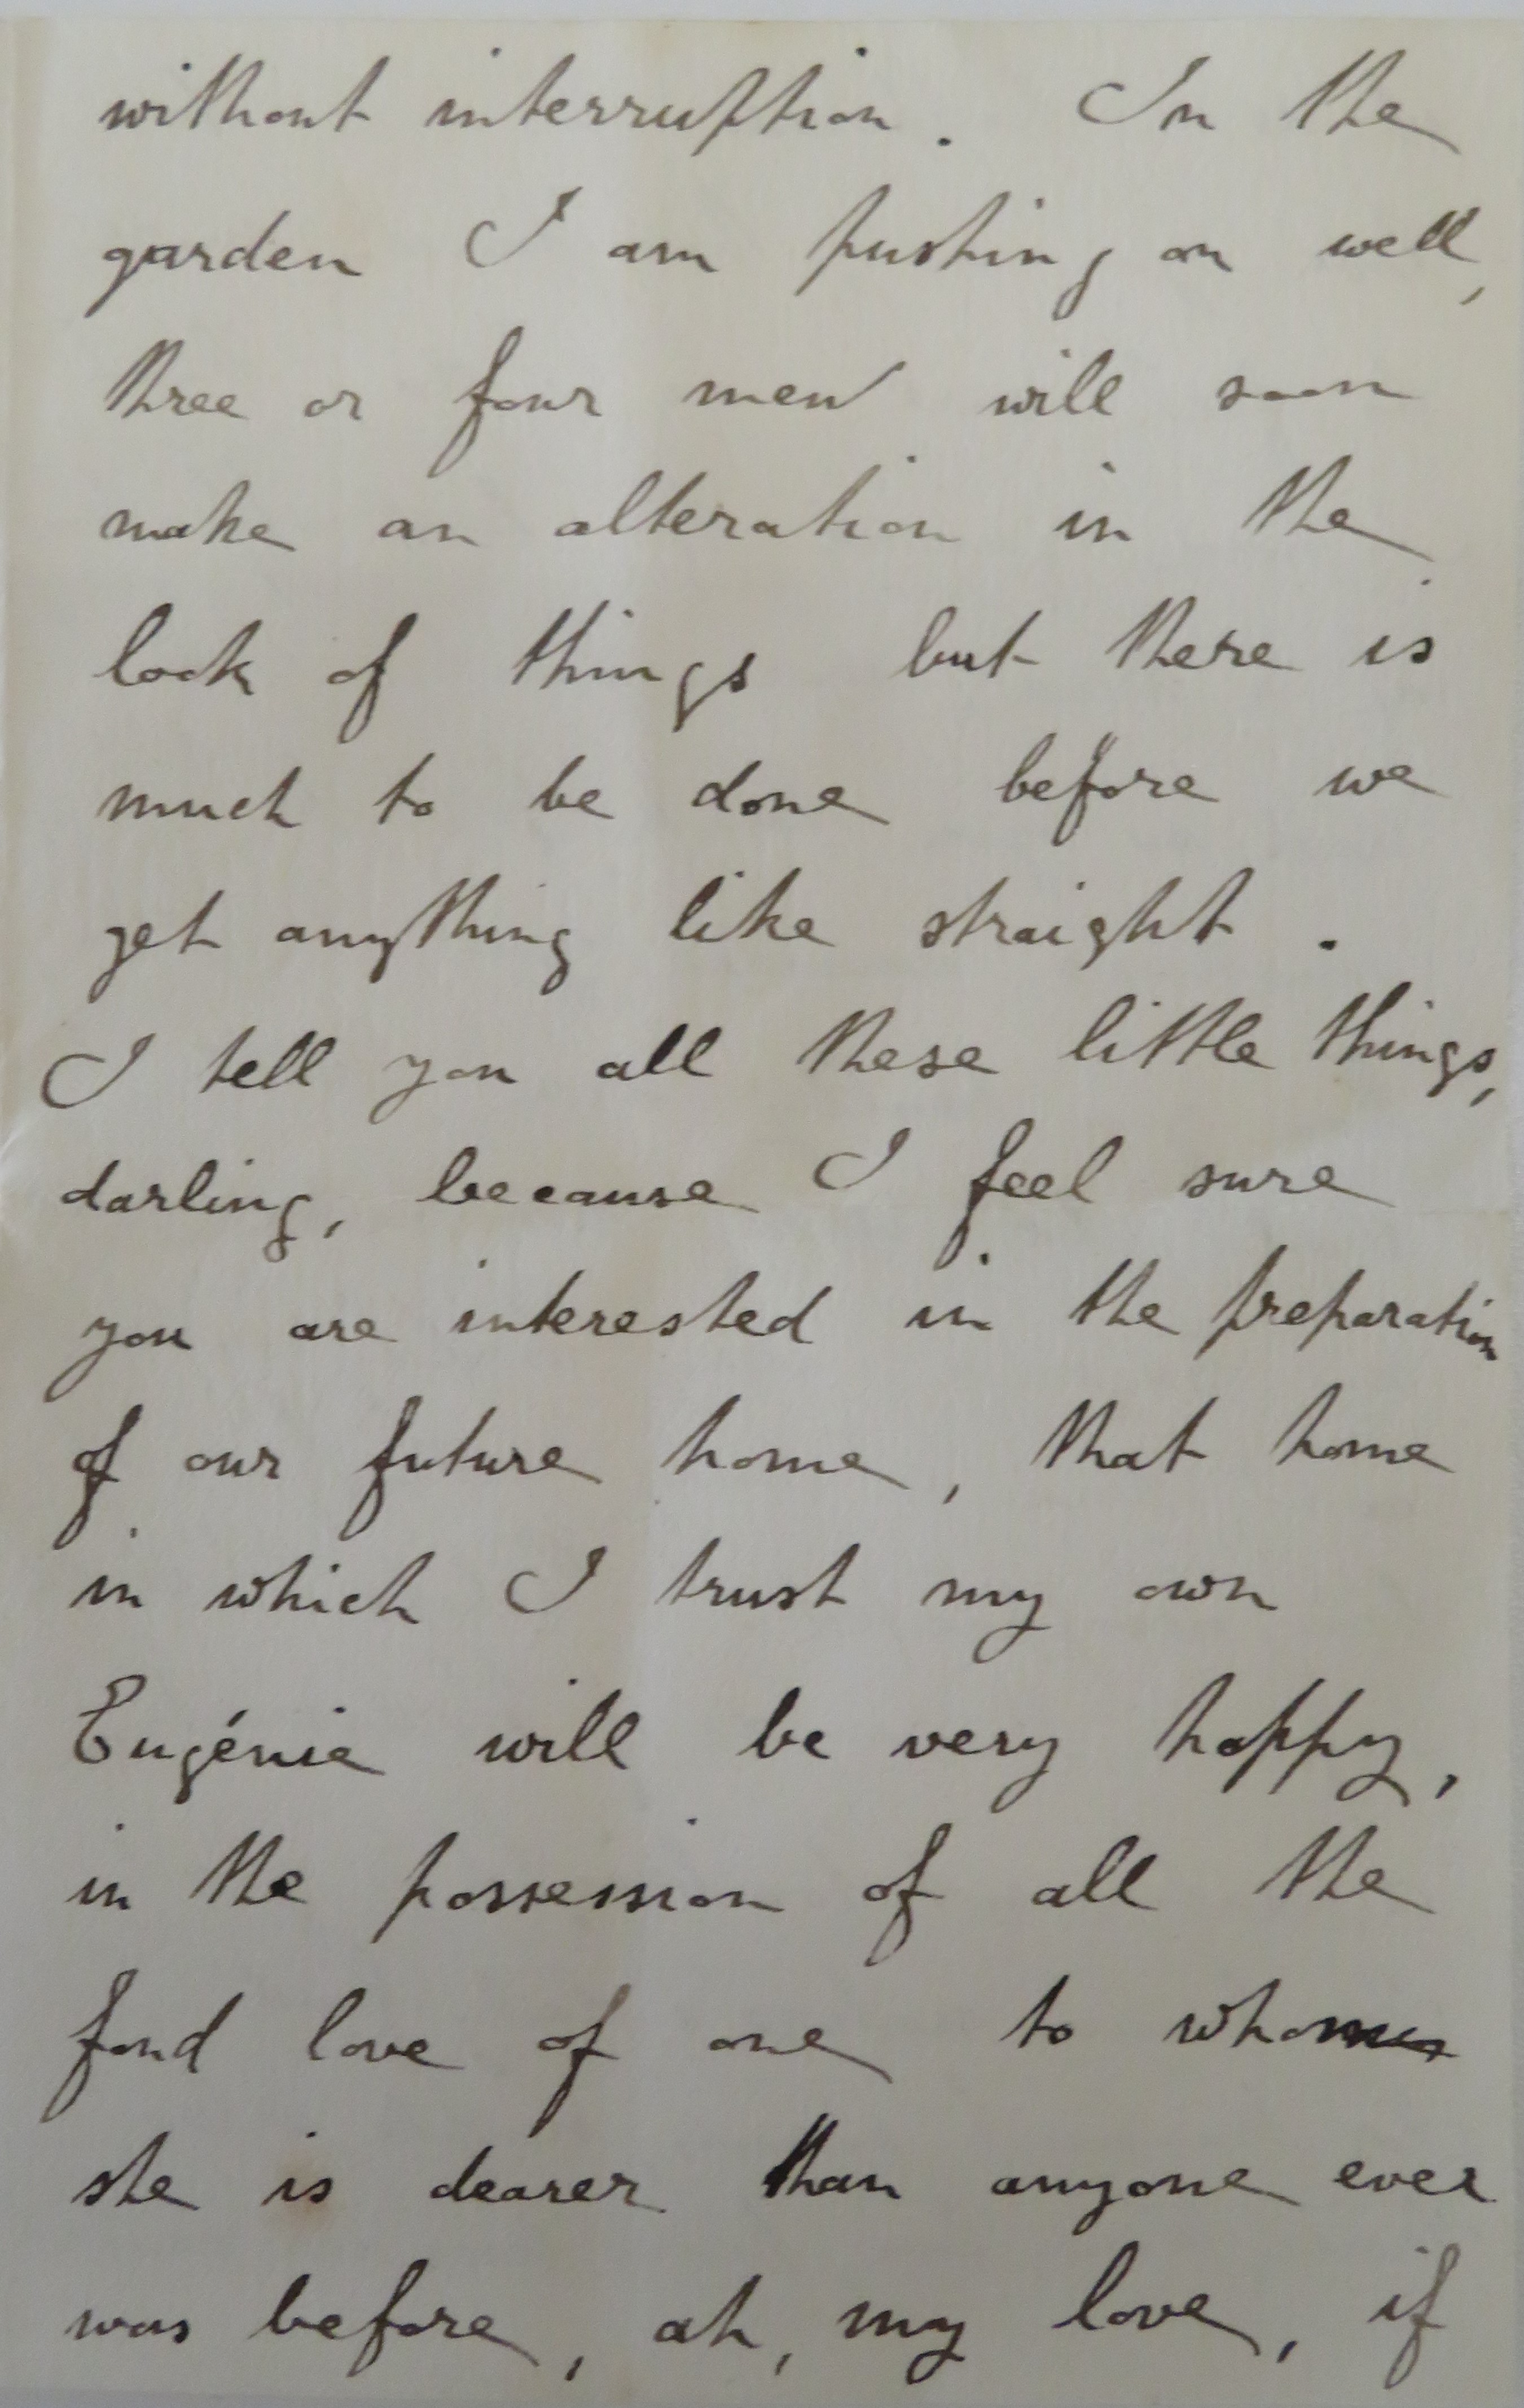 without interruption. In the
garden I am pushing on well,
three or four men will soon
make an alteration in the
look of things but there is
much to be done before we
get anything like straight.
I tell you all these little things,
darling, because I feel sure
you are interested in the preparation
of our future home, that home
in which I trust my own
Eugénie will be very happy,
in the possession of all the
fond love of one to whom
she is dearer than anyone ever
was before, ah, my love, if